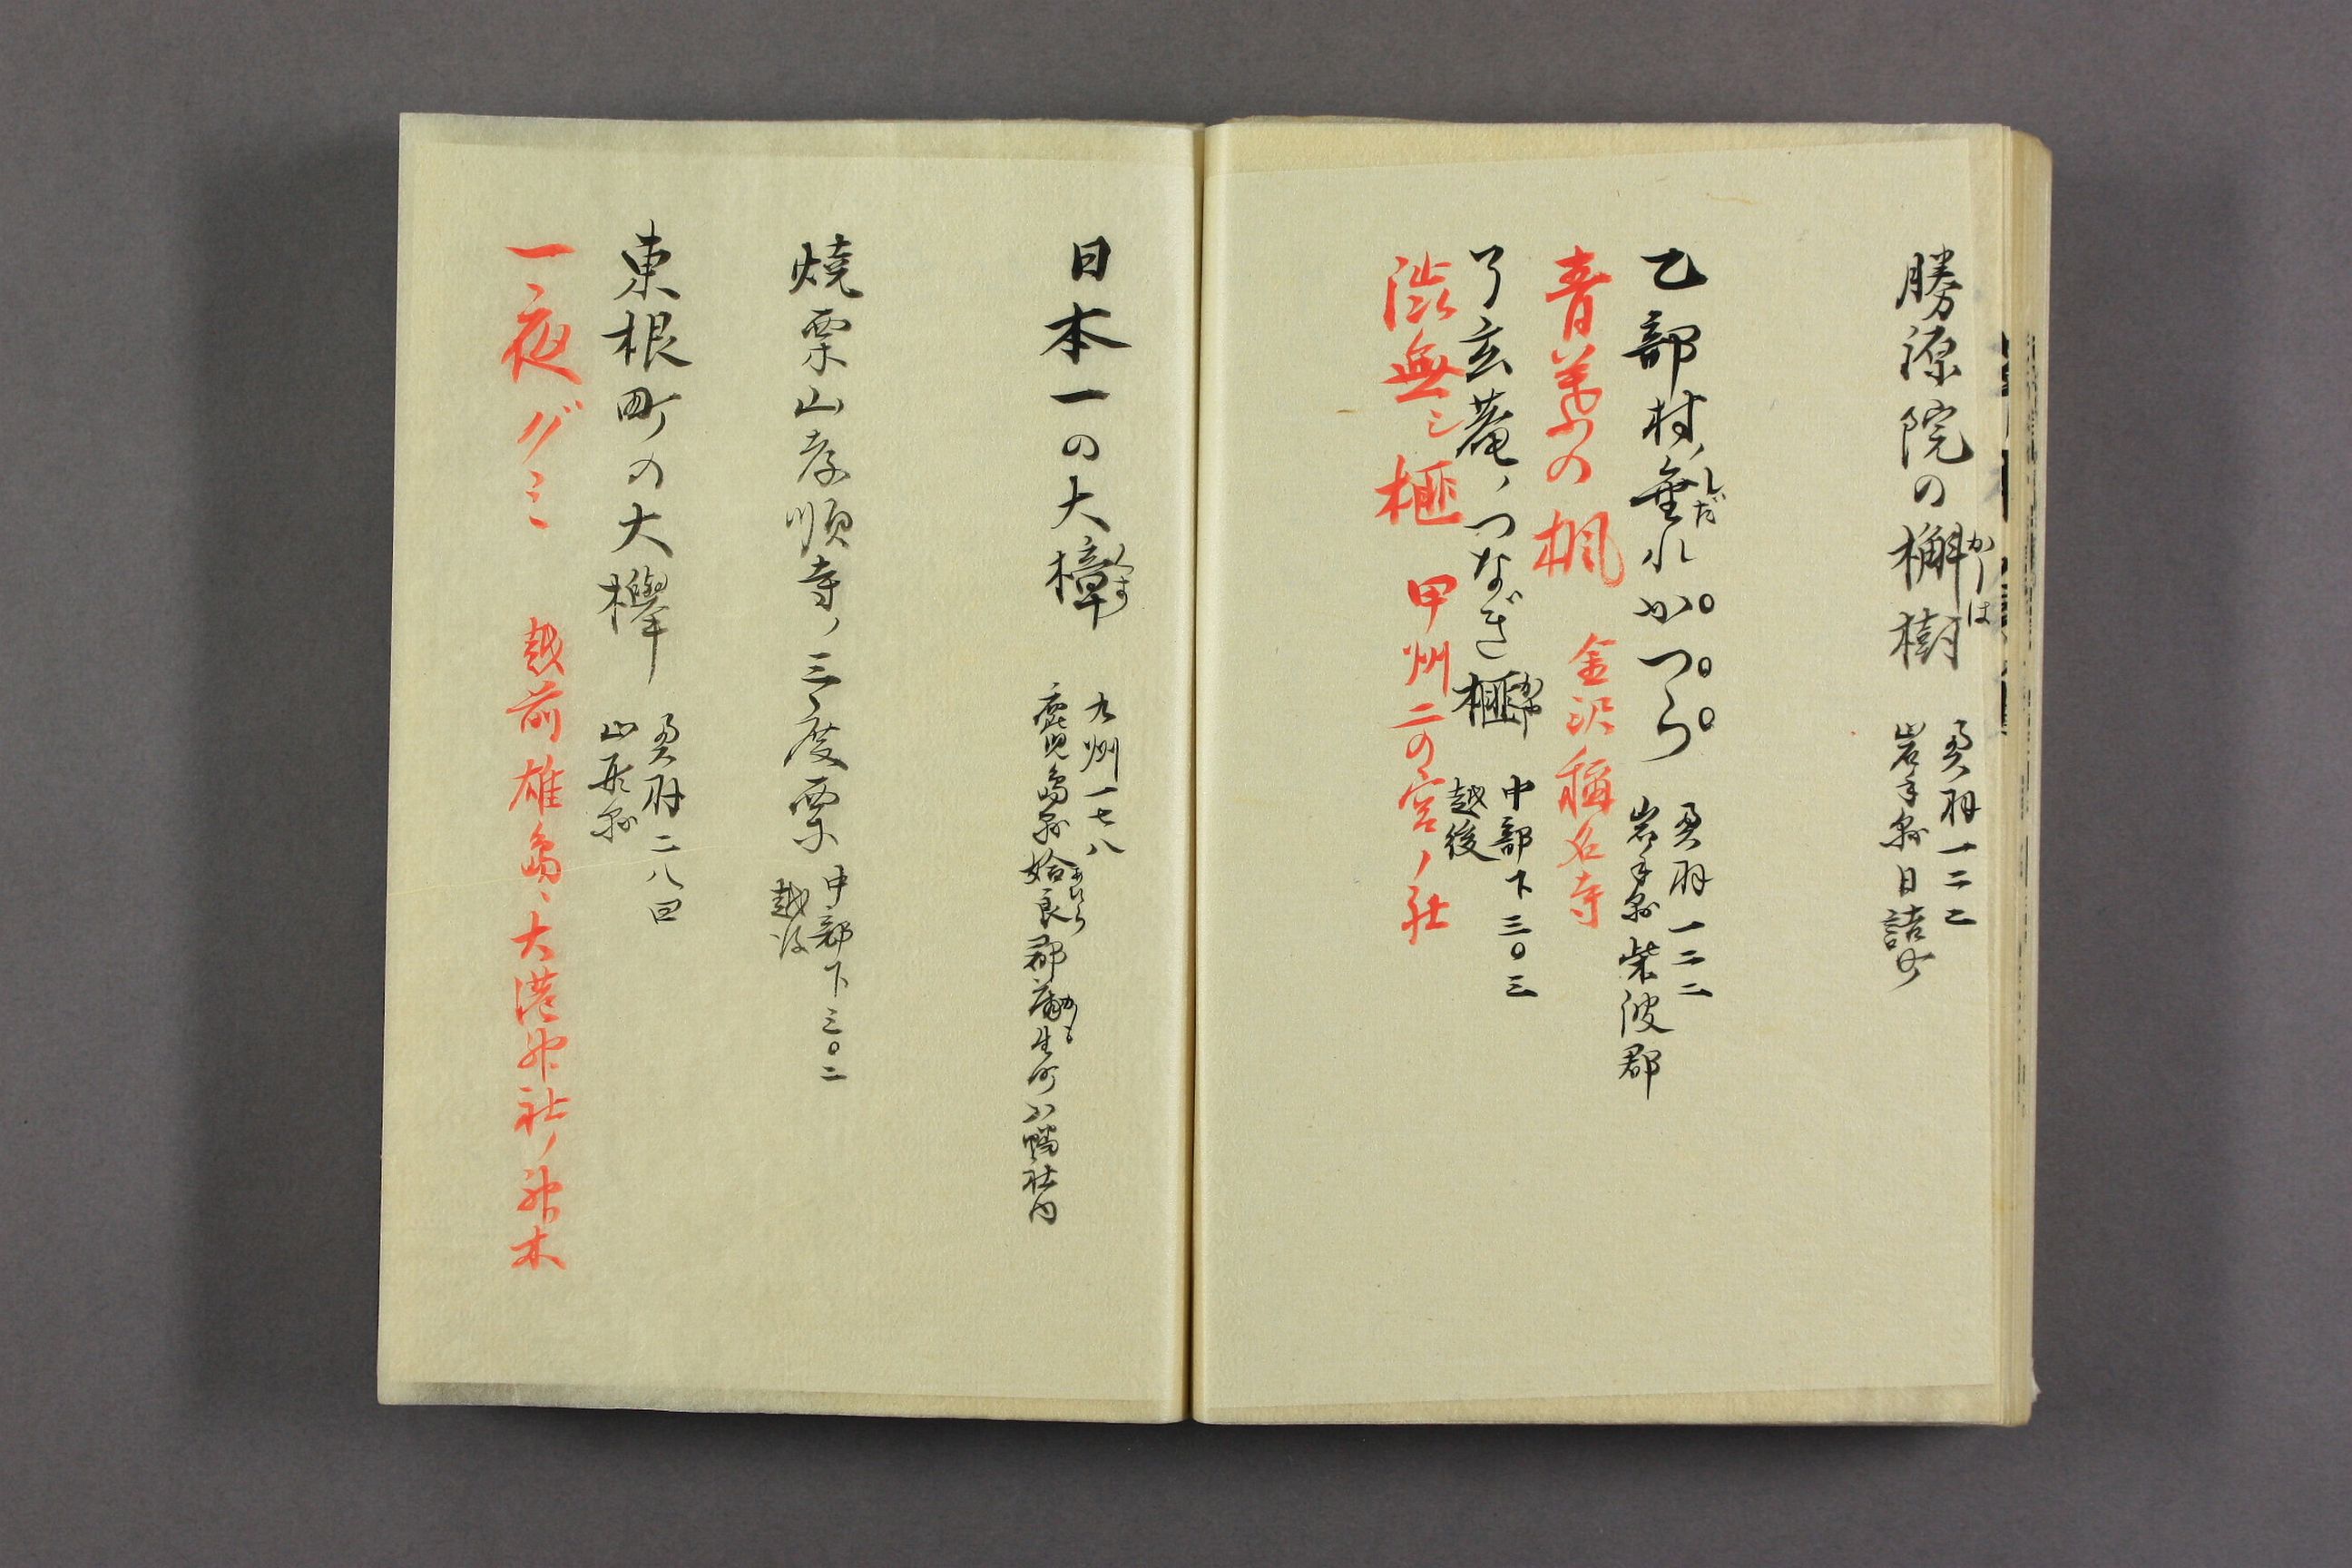 勝源院の槲樹
かしは
奥羽一二二
岩手縣日詰町
乙部村ノ垂れかつら
しだ
奥羽一二二
岩手縣柴波郡
青葉の楓 金沢稱名寺
了玄菴ノつなぎ榧
かや
中部下三〇三
越後
渋無シ榧 甲州二の宮ノ社
日本一の大樟
くす
九州一七八
鹿児島縣姶良郡蒲生町八幡社内
あひら
かもふ
焼栗山孝順寺ノ三度栗
中部下三〇二
越後
東根町の大欅
奥羽二八四
山形縣
一夜グミ 越前雄島、大港神社ノ神木